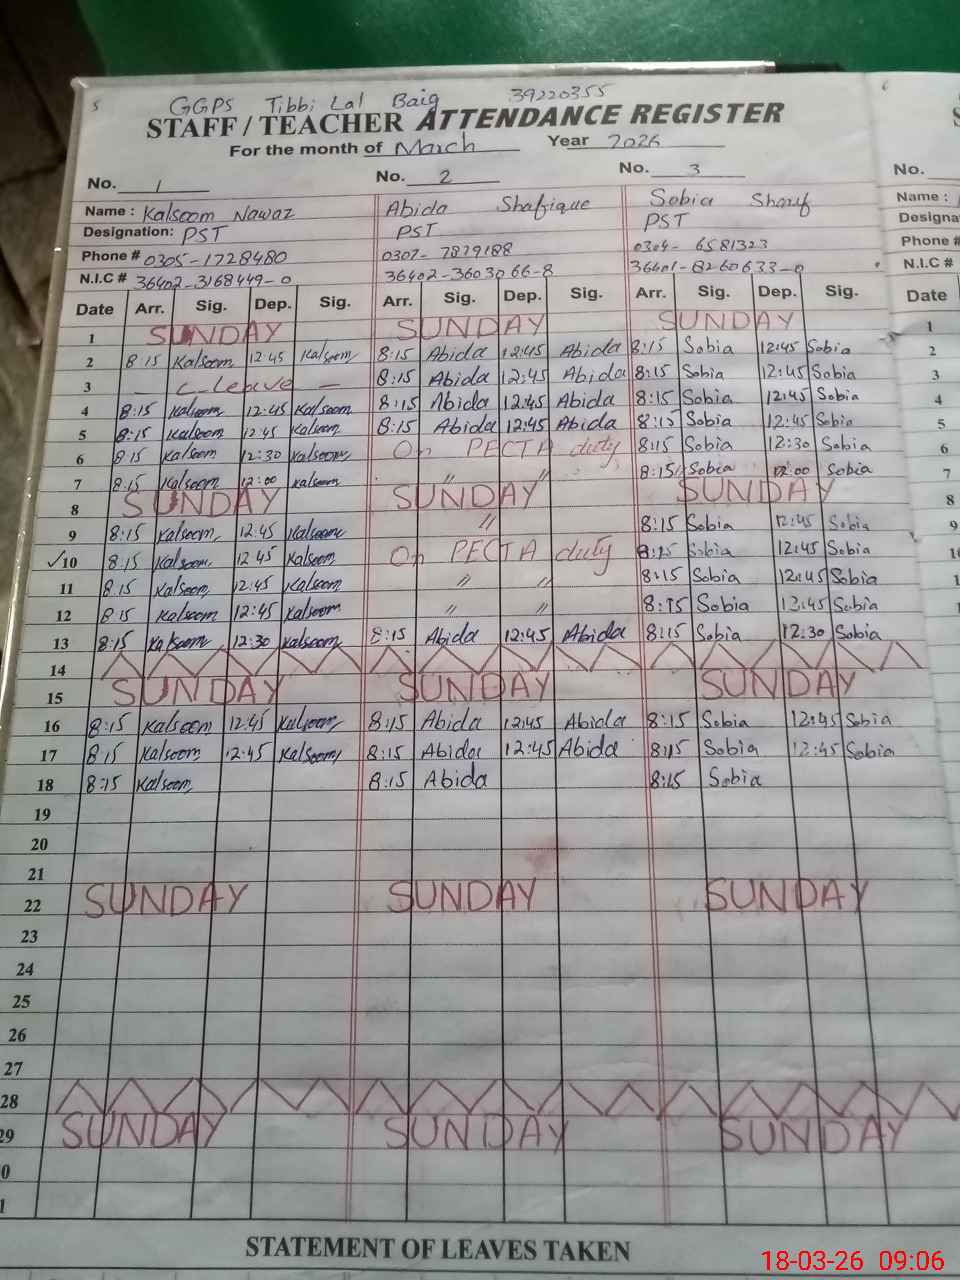 5 GGPS Tibbi Lal Baig 39220355 6
STAFF / TEACHER ATTENDANCE REGISTER
For the month of March Year 2026
No. 1 No. 2 No. 3 No.
Name : Kalsoom Nawaz Abida Shafique Sobia Sharif Name :
Designation: PST PST PST Designa
Phone # 0305-1728480 0307- 7879188 0304- 6581323 Phone #
N.I.C # 36402-3168449-0 36402-3603066-8 36401-8260633-0 N.I.C #
Date Arr. Sig. Dep. Sig. Arr. Sig. Dep. Sig. Arr. Sig. Dep. Sig. Date
1 SUNDAY SUNDAY SUNDAY 1
2 8:15 Kalsoom 12:45 Kalsoom 8:15 Abida 12:45 Abida 8:15 Sobia 12:45 Sobia 2
3 C-Leave - 8:15 Abida 12:45 Abida 8:15 Sobia 12:45 Sobia 3
4 8:15 Kalsoom 12:45 Kalsoom 8:15 Abida 12:45 Abida 8:15 Sobia 12:45 Sobia 4
5 8:15 Kalsoom 12:45 Kalsoom 8:15 Abida 12:45 Abida 8:15 Sobia 12:45 Sobia 5
6 8:15 Kalsoom 12:30 Kalsoom On PECTA duty 8:15 Sobia 12:30 Sobia 6
7 8:15 Kalsoom 12:00 Kalsoom " " 8:15 Sobia 12:00 Sobia 7
8 SUNDAY SUNDAY SUNDAY 8
9 8:15 Kalsoom 12:45 Kalsoom " 8:15 Sobia 12:45 Sobia 9
✓10 8:15 Kalsoom 12:45 Kalsoom On PECTA duty 8:15 Sobia 12:45 Sobia 10
11 8:15 Kalsoom 12:45 Kalsoom " " 8:15 Sobia 12:45 Sobia 1
12 8:15 Kalsoom 12:45 Kalsoom " " 8:15 Sobia 12:45 Sobia 1
13 8:15 Kalsoom 12:30 Kalsoom 8:15 Abida 12:45 Abida 8:15 Sobia 12:30 Sobia
14
15 SUNDAY SUNDAY SUNDAY
16 8:15 Kalsoom 12:45 Kalsoom 8:15 Abida 12:45 Abida 8:15 Sobia 12:45 Sobia
17 8:15 Kalsoom 12:45 Kalsoom 8:15 Abida 12:45 Abida 8:15 Sobia 12:45 Sobia
18 8:15 Kalsoom 8:15 Abida 8:15 Sobia
19
20
21
22 SUNDAY SUNDAY SUNDAY
23
24
25
26
27
28
29 SUNDAY SUNDAY SUNDAY
0
1
STATEMENT OF LEAVES TAKEN
18-03-26 09:06